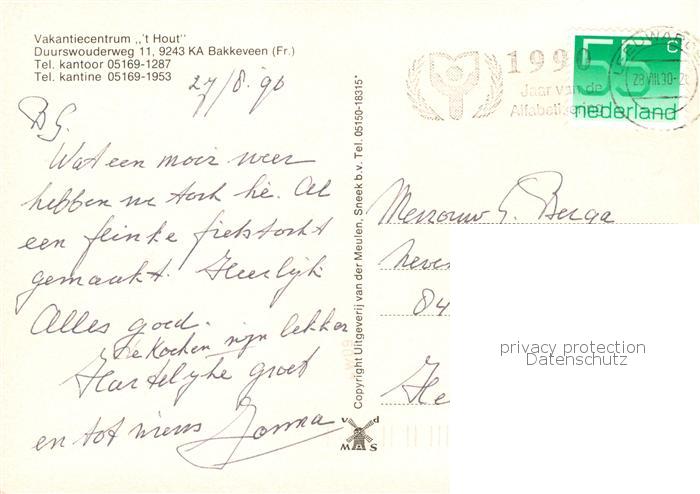 Vakantiecentrum ,,'t Hout"
Duurswouderweg 11, 9243 KA Bakkeveen (Fr.)
Tel. kantoor 05169-1287
Tel. kantine 05169-1953
27/8.'90
B G.
Wat een mooi weer
hebben we toch hè. Al
een flinke fietstocht
gemaakt. Heerlijk
Alles goed.
De Koeken zijn lekker
Hartelijke groet
en tot ziens
Copyright Uitgeverij van der Meulen, Sneek b.v. Tel. 05150-18315*
v d
MAS
1990
Jaar van de
Alfabetisering
28.VIII.90
55 c
nederland
Mevrouw G. Berga
84
He
privacy protection
Datenschutz